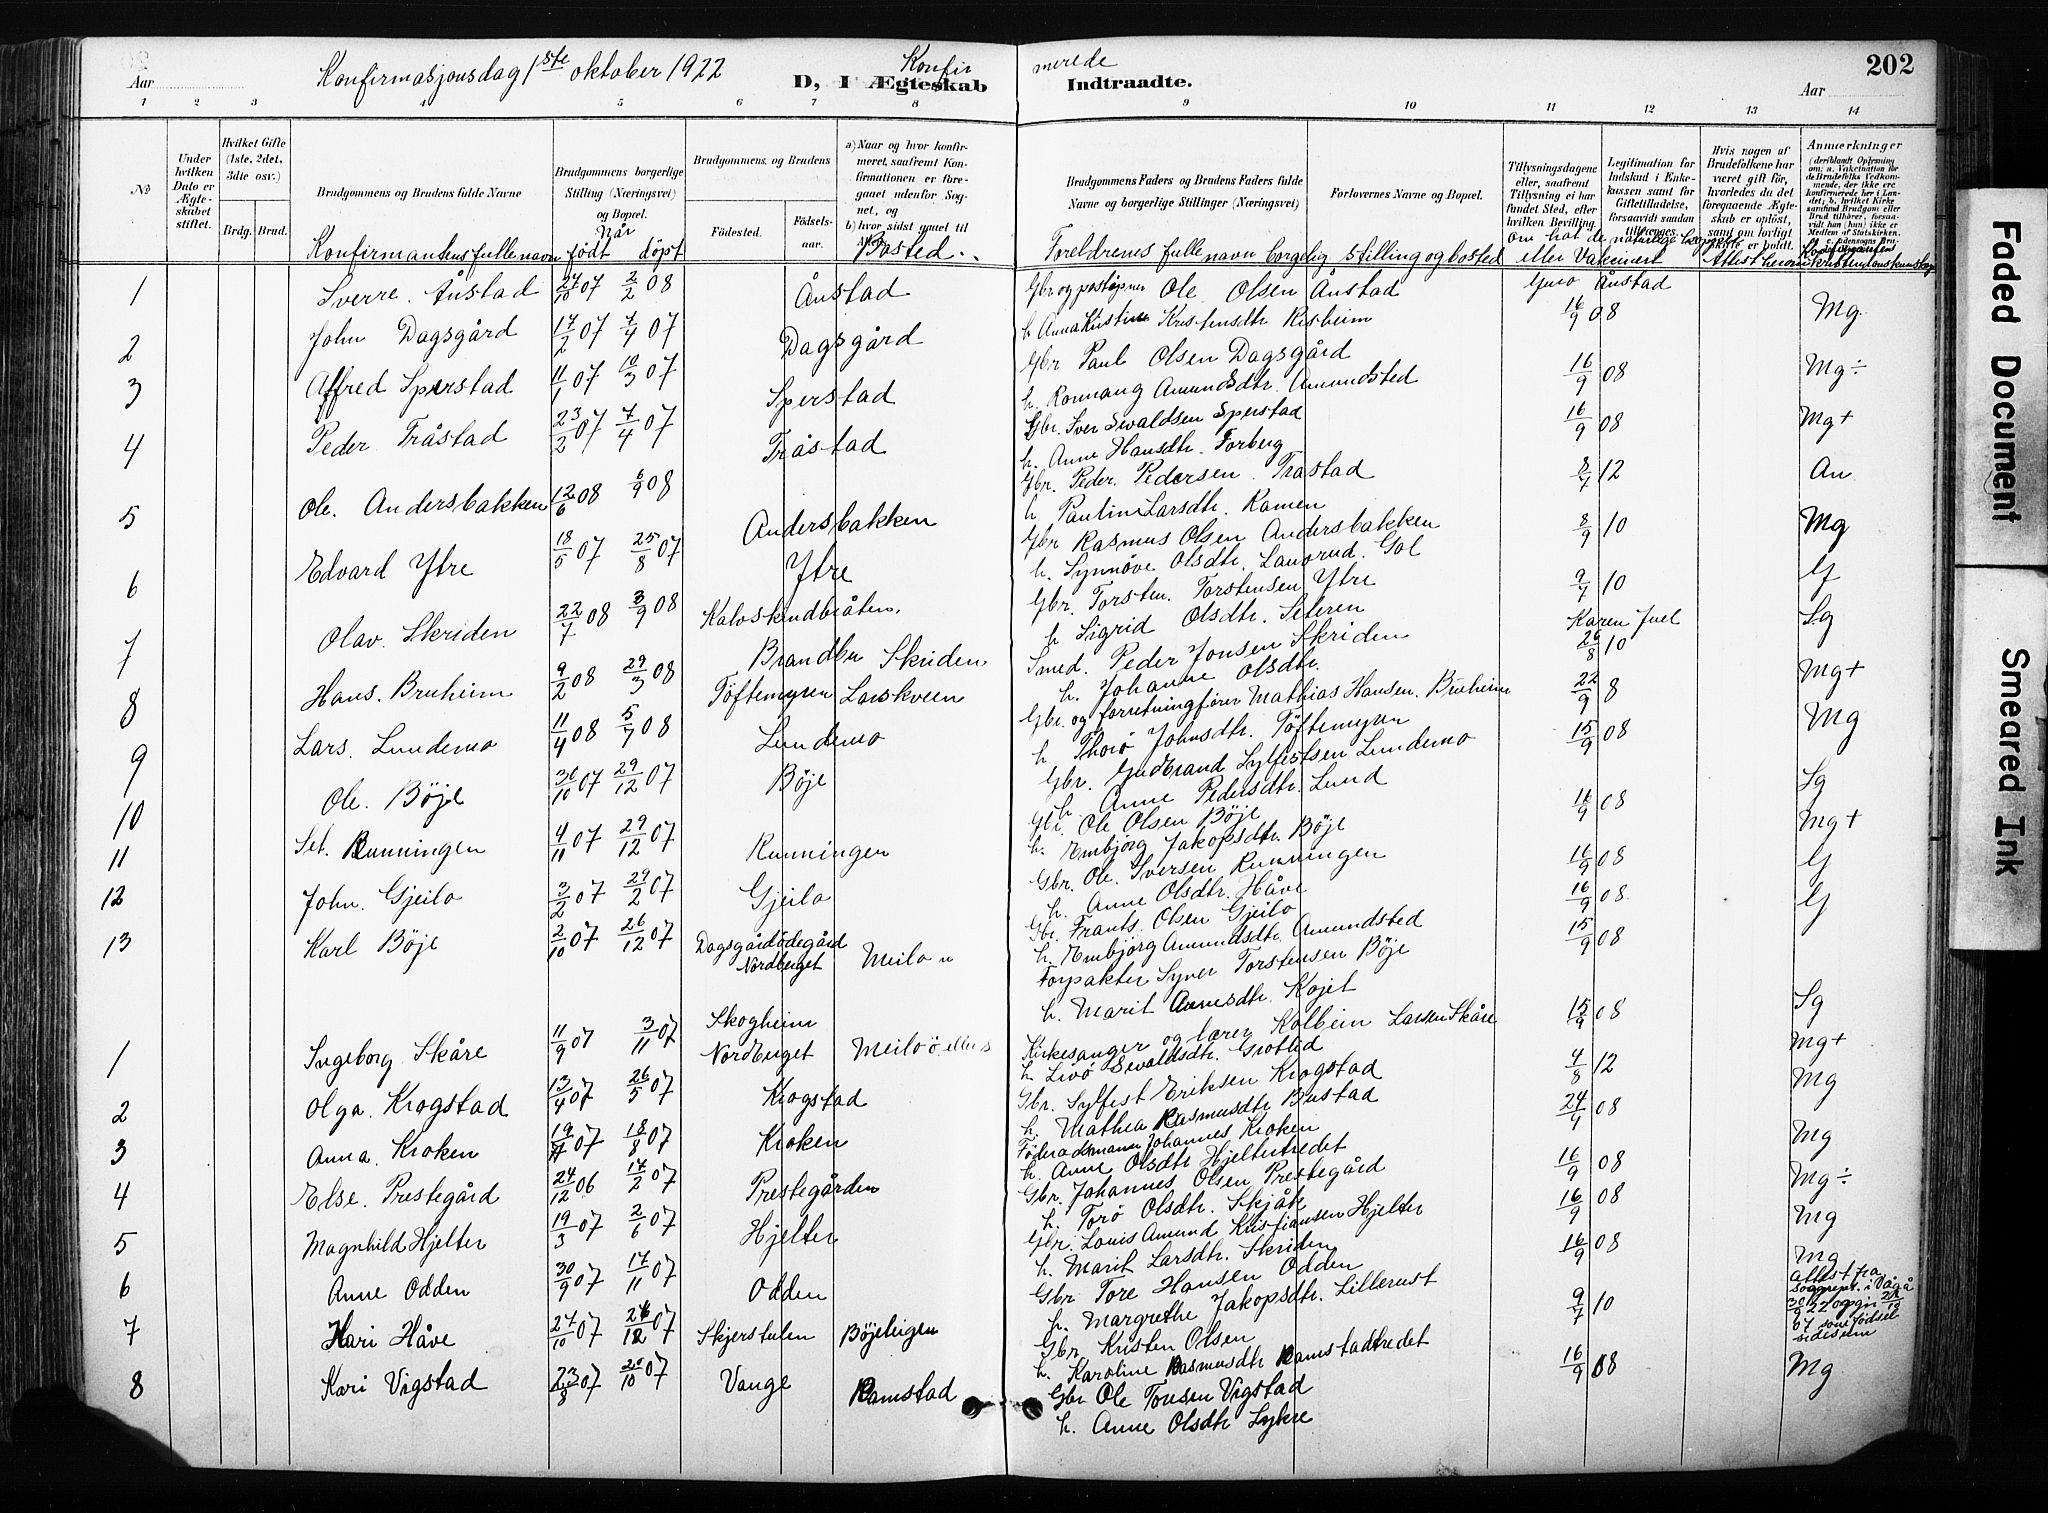 Konfirmasjonsdag 1ste oktober 1922
Konfir merede
202
Aar
D, I Ægteskab Indtraadte.
Aar
1 2 3 4 5 6 7 8 9 10 11 12 13 14
No
Under hvilken Dato er Ægteskabet stiftet.
Hvilket Gifte (1ste, 2det, 3die osv.)
Brdg. Brud.
Brudgommens og Brudens fulde Navne
Brudgommens borgerlige Stilling (Næringsvei) og Bopæl.
Brudgommens og Brudens
Fødested. Fødselsaar.
a) Naar og hvor konfirmeret, saafremt Konfirmationen er foregaaet udenfor Sognet, og
b) hvor sidst gaaet til Alters.
Brudgommens Faders og Brudens Faders fulde Navne og borgerlige Stillinger (Næringsvei)
Forlovernes Navne og Bopæl.
Tillysningsdagene eller, saafremt Tillysning ei har fundet Sted, efter hvilken Bevilling.
Legitimation for Indskud i Enkekassen samt for Giftetilladelse, forsaavidt saadan tiltrænges.
Hvis nogen af Brudefolkene har været gift før, hvorledes da det foregaaende Ægteskab er opløst, samt om lovligt Skifte er holdt.
Anmerkninger
Konfirmantens fulle navn
Når
født døpt
Bosted
Foreldrenes fulle navn borgelig stilling og bosted
om hat de naturlige kopper
eller Vaksinert
Attest herom
kristendomskunskap
1 Sverre Ånstad 27/10 07 2/2 08 Ånstad Gbr og poståpner Ole Olsen Ånstad Guro Ånstad
h. Anna Kristine Kristensdtr Risheim 16/9 08 Mg
2 John Dagsgård 17/2 07 7/4 07 Dagsgård Gbr Paul Olsen Dagsgård
h. Ronnaug Amundsdtr. Amundsted 16/9 08 Mg÷
3 Alfred Sperstad 11/1 07 10/3 07 Sperstad Gbr. Sver Sevaldsen Sperstad
h. Anne Hansdtr. Forberg 16/9 08 Mg+
4 Peder Tråstad 23/2 07 7/4 07 Tråstad Gbr. Peder Pedersen Trastad 8/7 12 An
h. Pauline Larsdtr. Ramen
5 Ole. Andersbakken 12/6 08 6/9 08 Andersbakken Gbr Rasmus Olsen Andersbakken 8/9 10 Mg
h. Synnøve Olsdtr. Gol
6 Edvard Ytre 18/5 07 25/8 07 Ytre Gbr. Torsten. Torstensen Ytre 9/7 10 G
h Sigrid Olsdtr. Seteren Karen Juel Sg
7 Olav. Skriden 22/7 08 3/9 08 Kalvskindbråten. Brandbu Skriden Smed. Peder Jonsen Skriden 26/8 10
h. Johanne Olsdtr. Mg+
8 Hans. Bruheim 9/2 08 29/3 08 Tøftemyren Larskveen Gbr. og forretningfører Mathias Hansen. Bruheim 22/9 8
h Thorø Johnsdtr. Tøftemyren Mg
9 Lars. Lundemo 11/4 08 5/7 08 Lundemo Gbr. Gudbrand Sylfestsen Lundemo 15/9 08
h Anne Pedersdtr. Lund Sg
10 Ole. Bøje 30/10 07 29/12 07 Bøje Gbr. Ole Olsen Bøje 16/9 08
h. Embjørg Jakopsdtr. Bøje Mg+
11 Set. Runningen 4/11 07 29/12 07 Runningen Gbr. Ole. Iversen Runningen 16/9 08 G
h. Anne Olsdtr. Håve
12 John. Gjeilo 3/2 07 29/2 07 Gjeilo Gbr. Frants. Olsen Gjeilo 16/9 08 G
h. Embjørg Amundsdtr. Amundsted
13 Karl Bøje 2/10 07 26/12 07 Dagsgårdødegård Nordberget Meilo Forpakter Syver Torstensen Bøje 15/9 08
h. Marit Kojet Sg
1 Ingeborg Skåre 11/9 07 3/11 07 Skogheim Nordberget Kirkesanger og lærer Kolbein Larsen Skåre 15/9 08
h Livø Sevaldsdtr. Grotted Mg+
2 Olga. Krogstad 13/4 07 26/5 07 Krogstad Gbr. Sylfest Eriksen Krogstad 4/8 12 Mg
h. Mathea Rasmusdtr Bustad
3 Anna. Kroken 19/7 07 18/8 07 Kroken Føderådsmann Johannes Kroken 24/4 08
h. Anne Olsdtr Hjeltertredet Mg
4 Else. Prestegård 24/12 06 17/2 07 Prestegården Gbr. Johannes Olsen Prestegård 16/9 08
h. Torø Olsdtr. Skjåk Mg÷
5 Magnhild Hjelter 19/3 07 2/6 07 Hjelter Gbr. Louis Amund Kristiansen Hjelter 16/9 08
h. Marit Larsdtr. Skriden Mg
6 Anne Odden 30/9 07 17/11 07 Odden Gbr Tore Hansen Odden 16/9 08
h. Margrethe Jakopsdtr. Lillerust Mg
Attest fra
i Vågå
7 Kari Håve 27/10 07 26/12 07 Skjerstulen Bøjeteigen Gbr Kristen Olsen 9/7 10
h. Karoline Rasmusdtr Ramstadtredet
8 Kari Vigstad 23/8 07 20/10 07 Vange Ramstad Gbr Ole Tonsen Vigstad 16/9 08 Mg
h. Anne Olsdtr Lykre
Faded Document
Smeared Ink